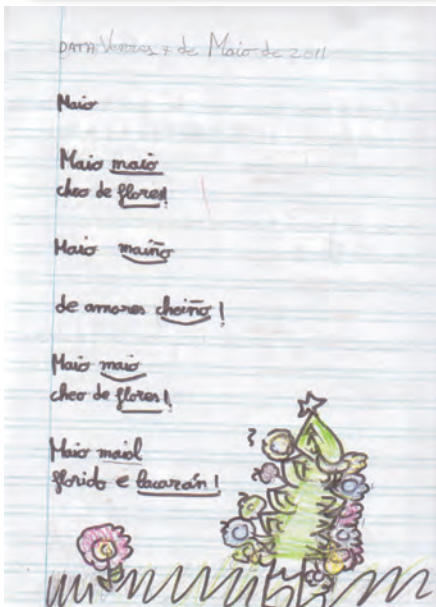 DATA: Venres 7 de Maio de 2011
Maio
Maio maio
cheo de flores!
Maio maiño
de amores cheiño!
Maio maio
cheo de flores!
Maio maiol
florido e lacazán!